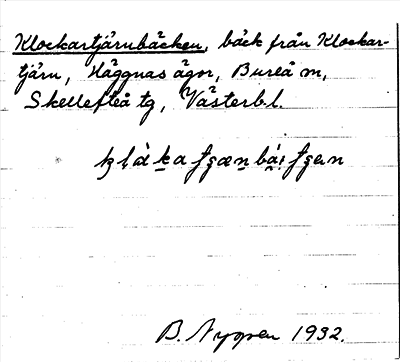 Klockartjärnbäcken, bäck från Klockar-
tjärn, Häggnäs ägor, Bureå sn,
Skellefteå tg, Västerb. l.
B. Nygren 1932.